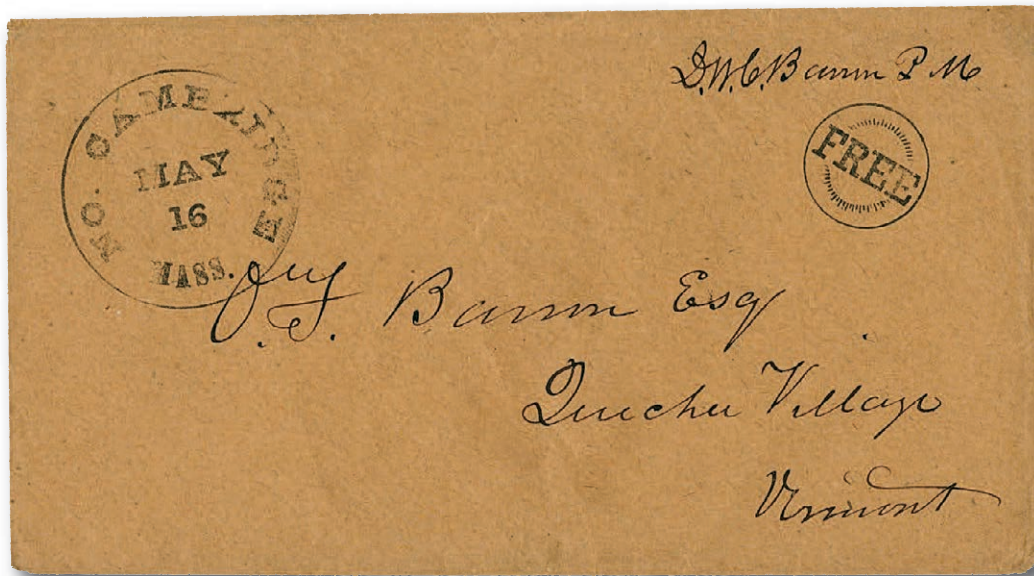 D.W.C. Barron P M
FREE
NO. CAMBRIDGE
MAY
16
MASS.
Barron Esq
Quechee Village
Vermont